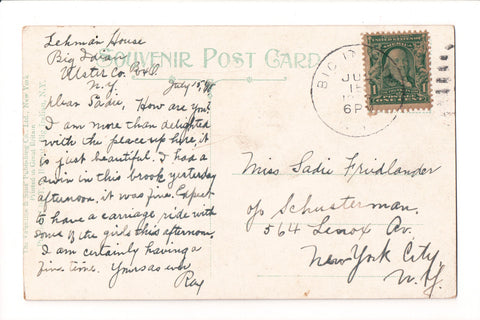 Lehman House
Big Indian
Ulster Co.
N.Y.
July 15
SOUVENIR POST CARD
Dear Sadie, How are you?
I am more than delighted
with the place up here, it
is just beautiful. I had a
swim in this brook yesterday
afternoon, it was fine. Expect
to have a carriage ride with
some of the girls this afternoon.
I am certainly having a
fine time. Yours as ever
Ray
BIG
JU
15
6P
1 1
Miss Sadie Friedlander
c/o Schusterman.
564 Lenox Av.
New York City,
N.Y.